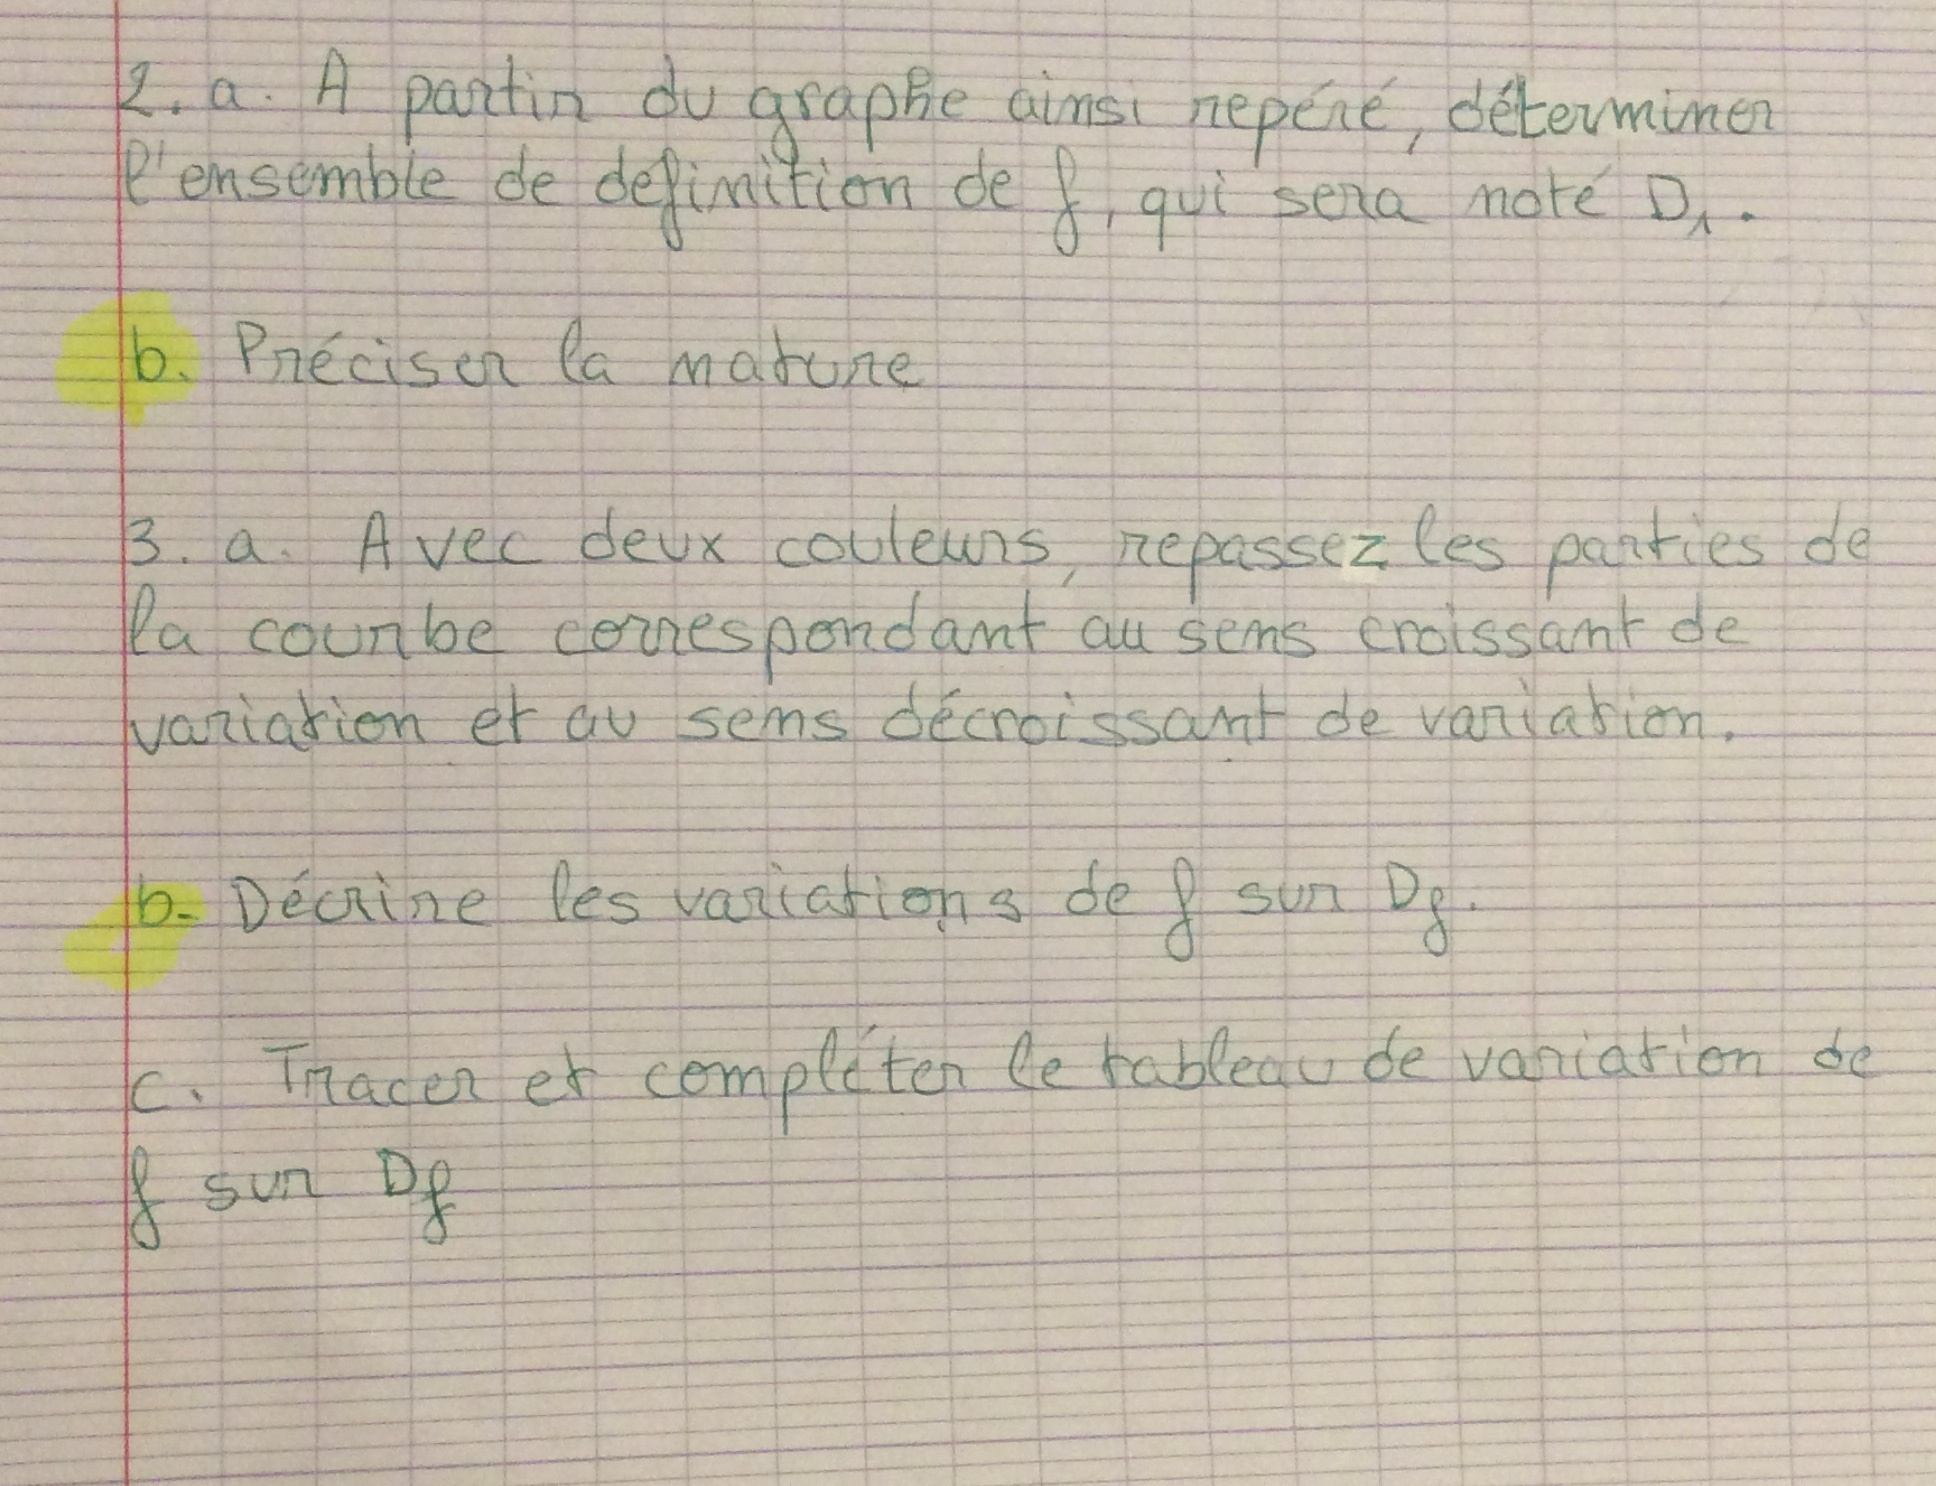 2. a. A partir du graphe ainsi repéré, déterminer
l'ensemble de definition de f, qui sera noté D1.
b. Préciser la nature
3. a. Avec deux couleurs, repassez les parties de
la courbe correspondant au sens croissant de
variation et au sens décroissant de variation.
b. Décrire les variations de f sur Df.
c. Tracer et compléter le tableau de variation de
f sur Df